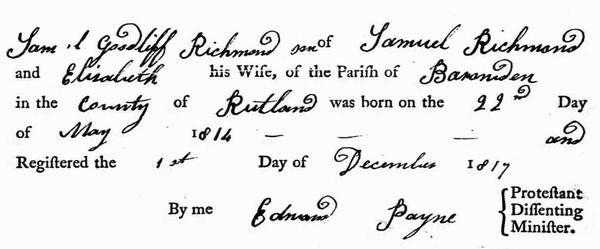 Sam.l Goodliff Richmond son of Samuel Richmond
and Elisabeth his Wife, of the Pariſh of Barrowden
in the County of Rutland was born on the 22nd Day
of May 1814 — — — and
Regiſtered the 1st Day of December 1817
By me Edward Payne { Proteſtant
Diſſenting
Miniſter.